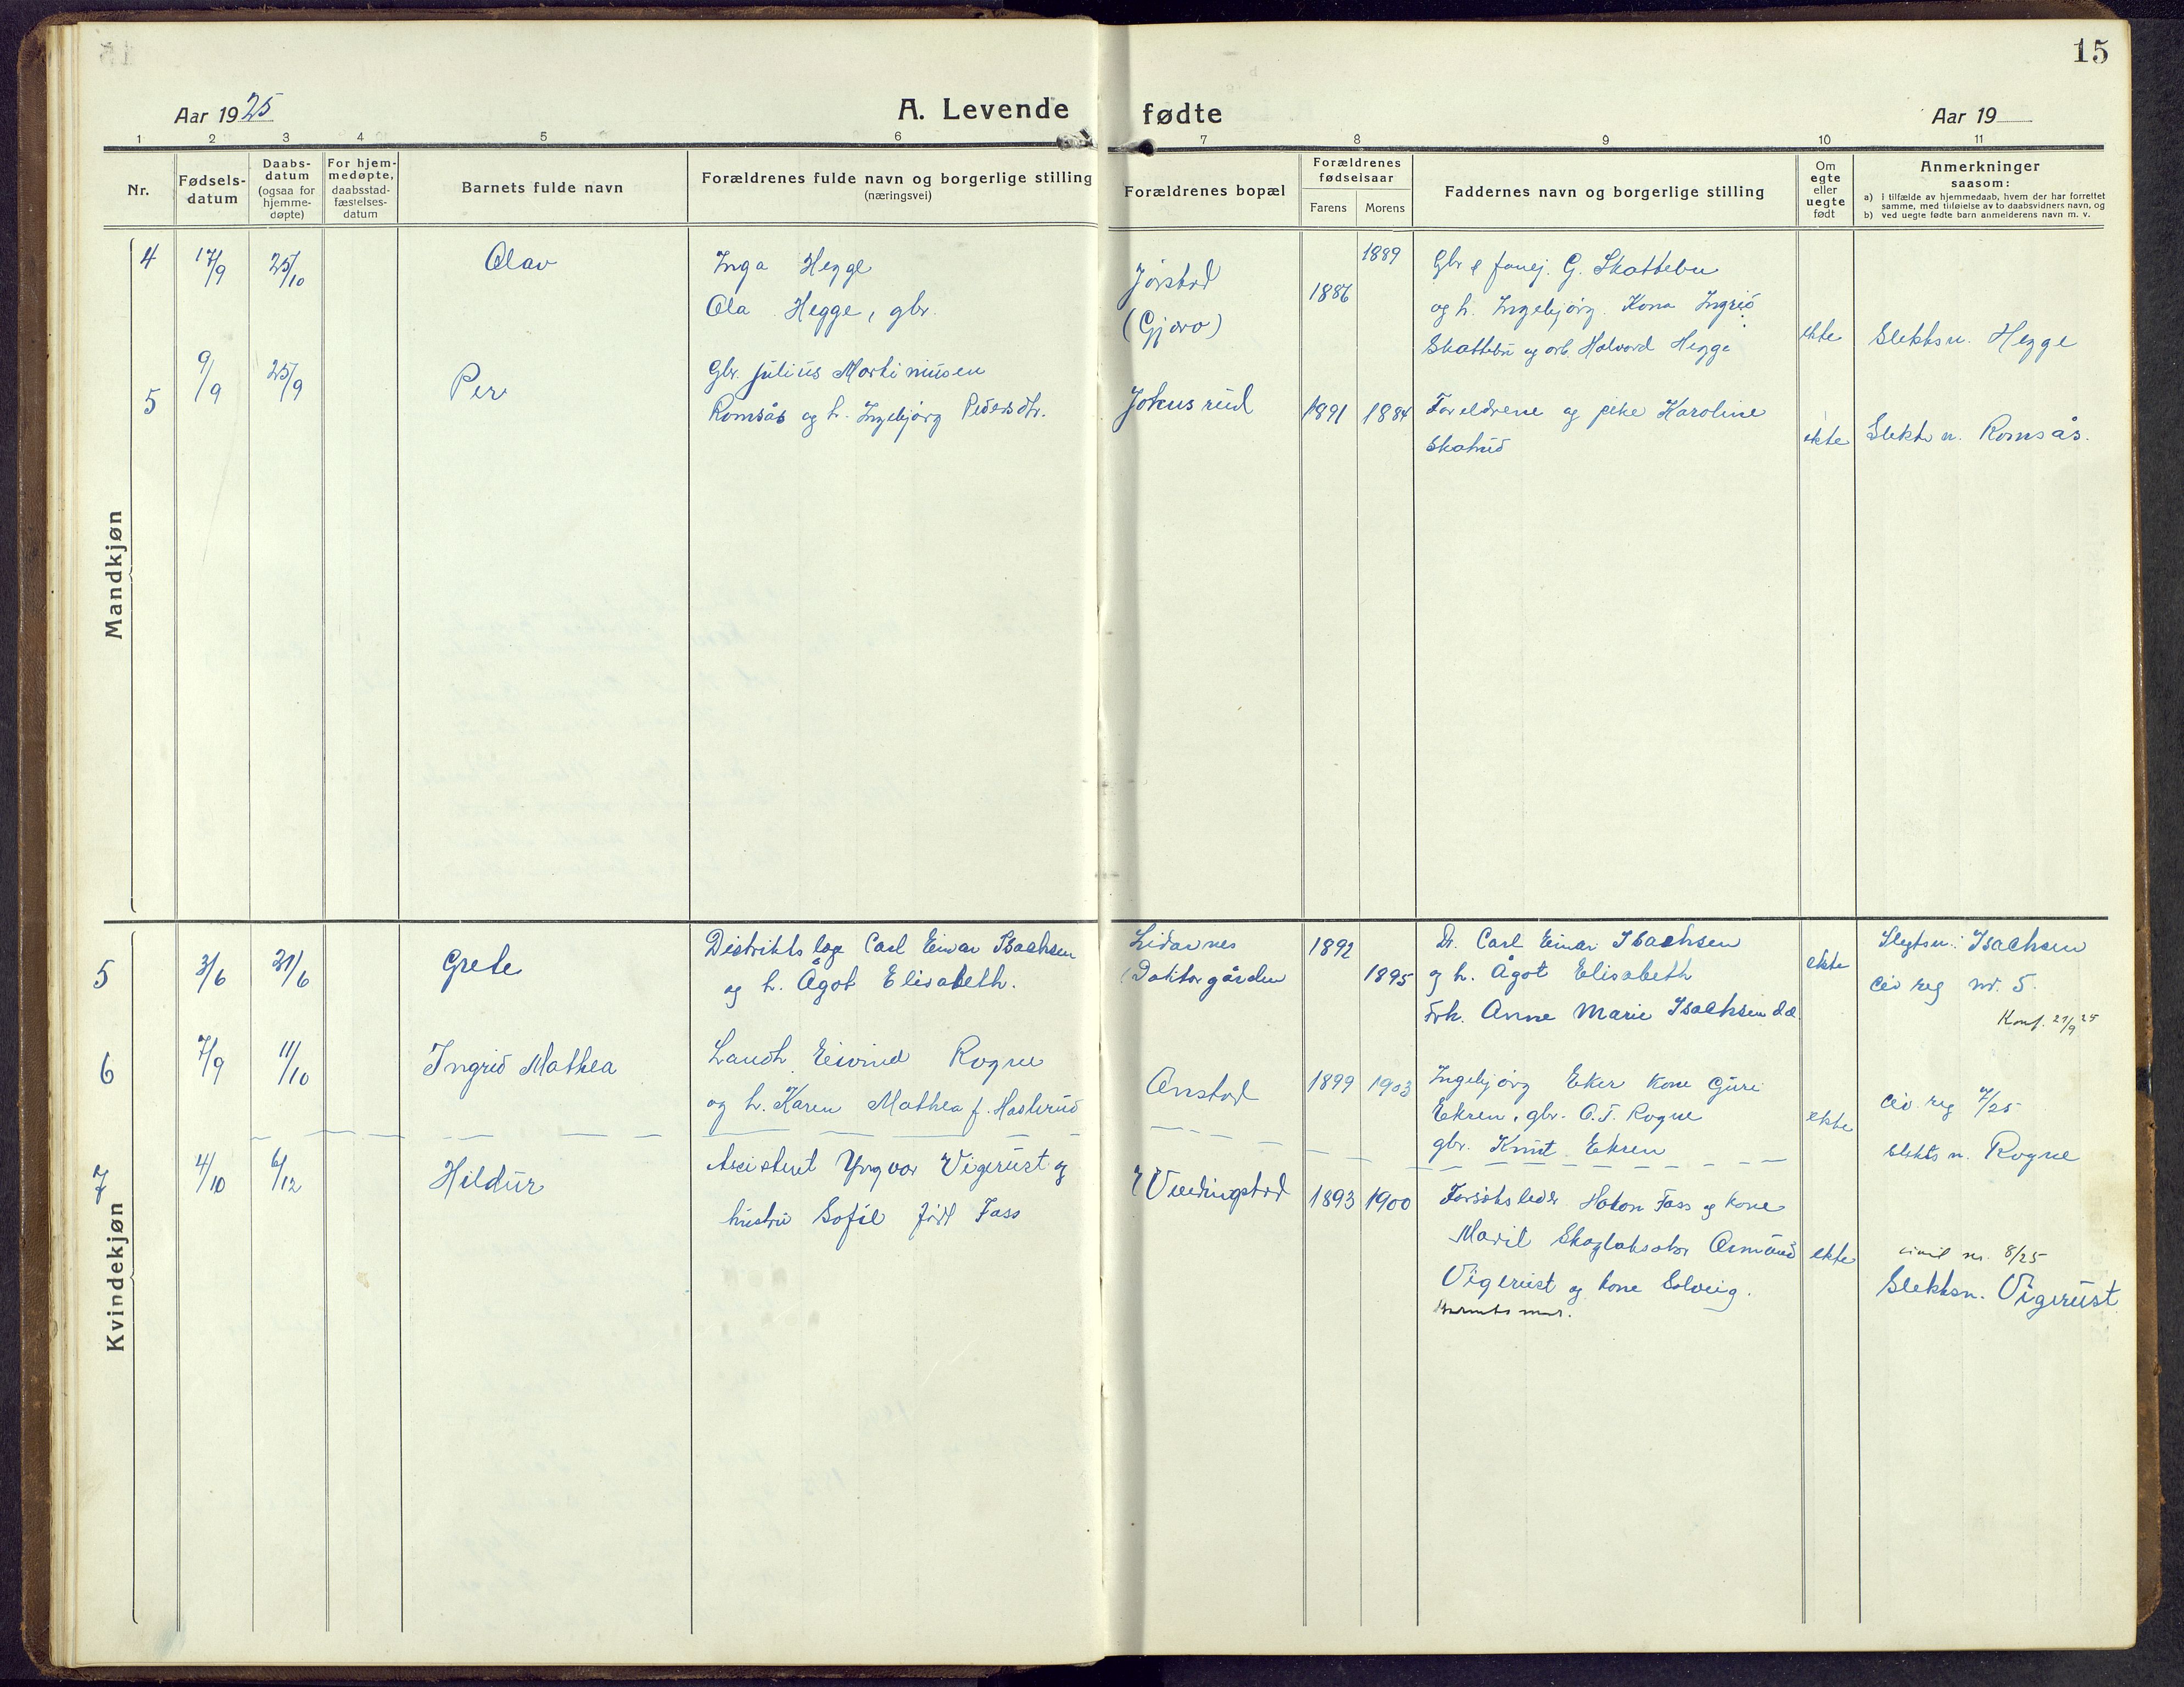 15
Aar 1925
A. Levende fødte
Aar 19
1 2 3 4 5 6 7 8 9 10 11
Nr.
Fødsels-
datum
Daabs-
datum
(ogsaa for
hjemme-
døpte)
For hjem-
medøpte,
daabsstad-
fæstelses-
datum
Barnets fulde navn
Forældrenes fulde navn og borgerlige stilling
(næringsvei)
Forældrenes bopæl
Forældrenes
fødselsaar
Farens Morens
Faddernes navn og borgerlige stilling
Om
egte
eller
uegte
født
Anmerkninger
saasom:
a) I tilfælde av hjemmedaab, hvem der har forrettet
samme, med tilføielse av to daabsvidners navn, og
b) ved uegte fødte barn anmelderens navn m. v.
Mandkjøn
4 17/9 25/10 Olav
Inga Hegge
Ola Hegge, gbr.
Jørstad
(Gjøvo)
1886 1889
Gbr. G. Skattebu
og h. Ingebjørg. Kona Ingrid
Skattebu og arb. Halvard Hegge
ekte
Slektsn. Hegge
5 9/9 25/9 Per
Gbr. Julius Martinusen
Romsås og h. Ingebjørg Pedersdtr.
Johusrud
1891 1884
Foreldrene og pike Karoline
Skatrud
ekte
Slektsn. Romsås.
Kvindekjøn
5 3/6 21/6 Grete
Distriktslæge Carl Einar Isachsen
og h. Ågot Elisabeth.
Lidarnes
(Doktorgården
1892 1895
Dr. Carl Einar Isachsen
og h. Ågot Elisabeth
Frk. Anne Marie Isachsen d.d.
ekte
Slegtsn: Isachsen
civ reg nr. 5.
Konf. 21/9 25
6 7/9 11/10 Ingrid Mathea
Landh. Eivind Rogne
og h. Karen Mathea f. Haslerud
Onstad
1899 1903
Ingebjørg Eker kone Guri
Ekren, gbr. O.T. Rogne
gbr. Knut Ekren
ekte
civ. reg 7/25
slektsn. Rogne
7 4/10 6/12 Hildur
Assistent Yngvar Vigerust og
hustru Sofie født Foss
Vollingstad
1893 1900
Forsøksleder Håkon Foss og kone
Marit Skogtaksator Asmund
Vigerust og kone Solveig.
Barnets mor.
ekte
civil nr. 8/25
Slektsn. Vigerust